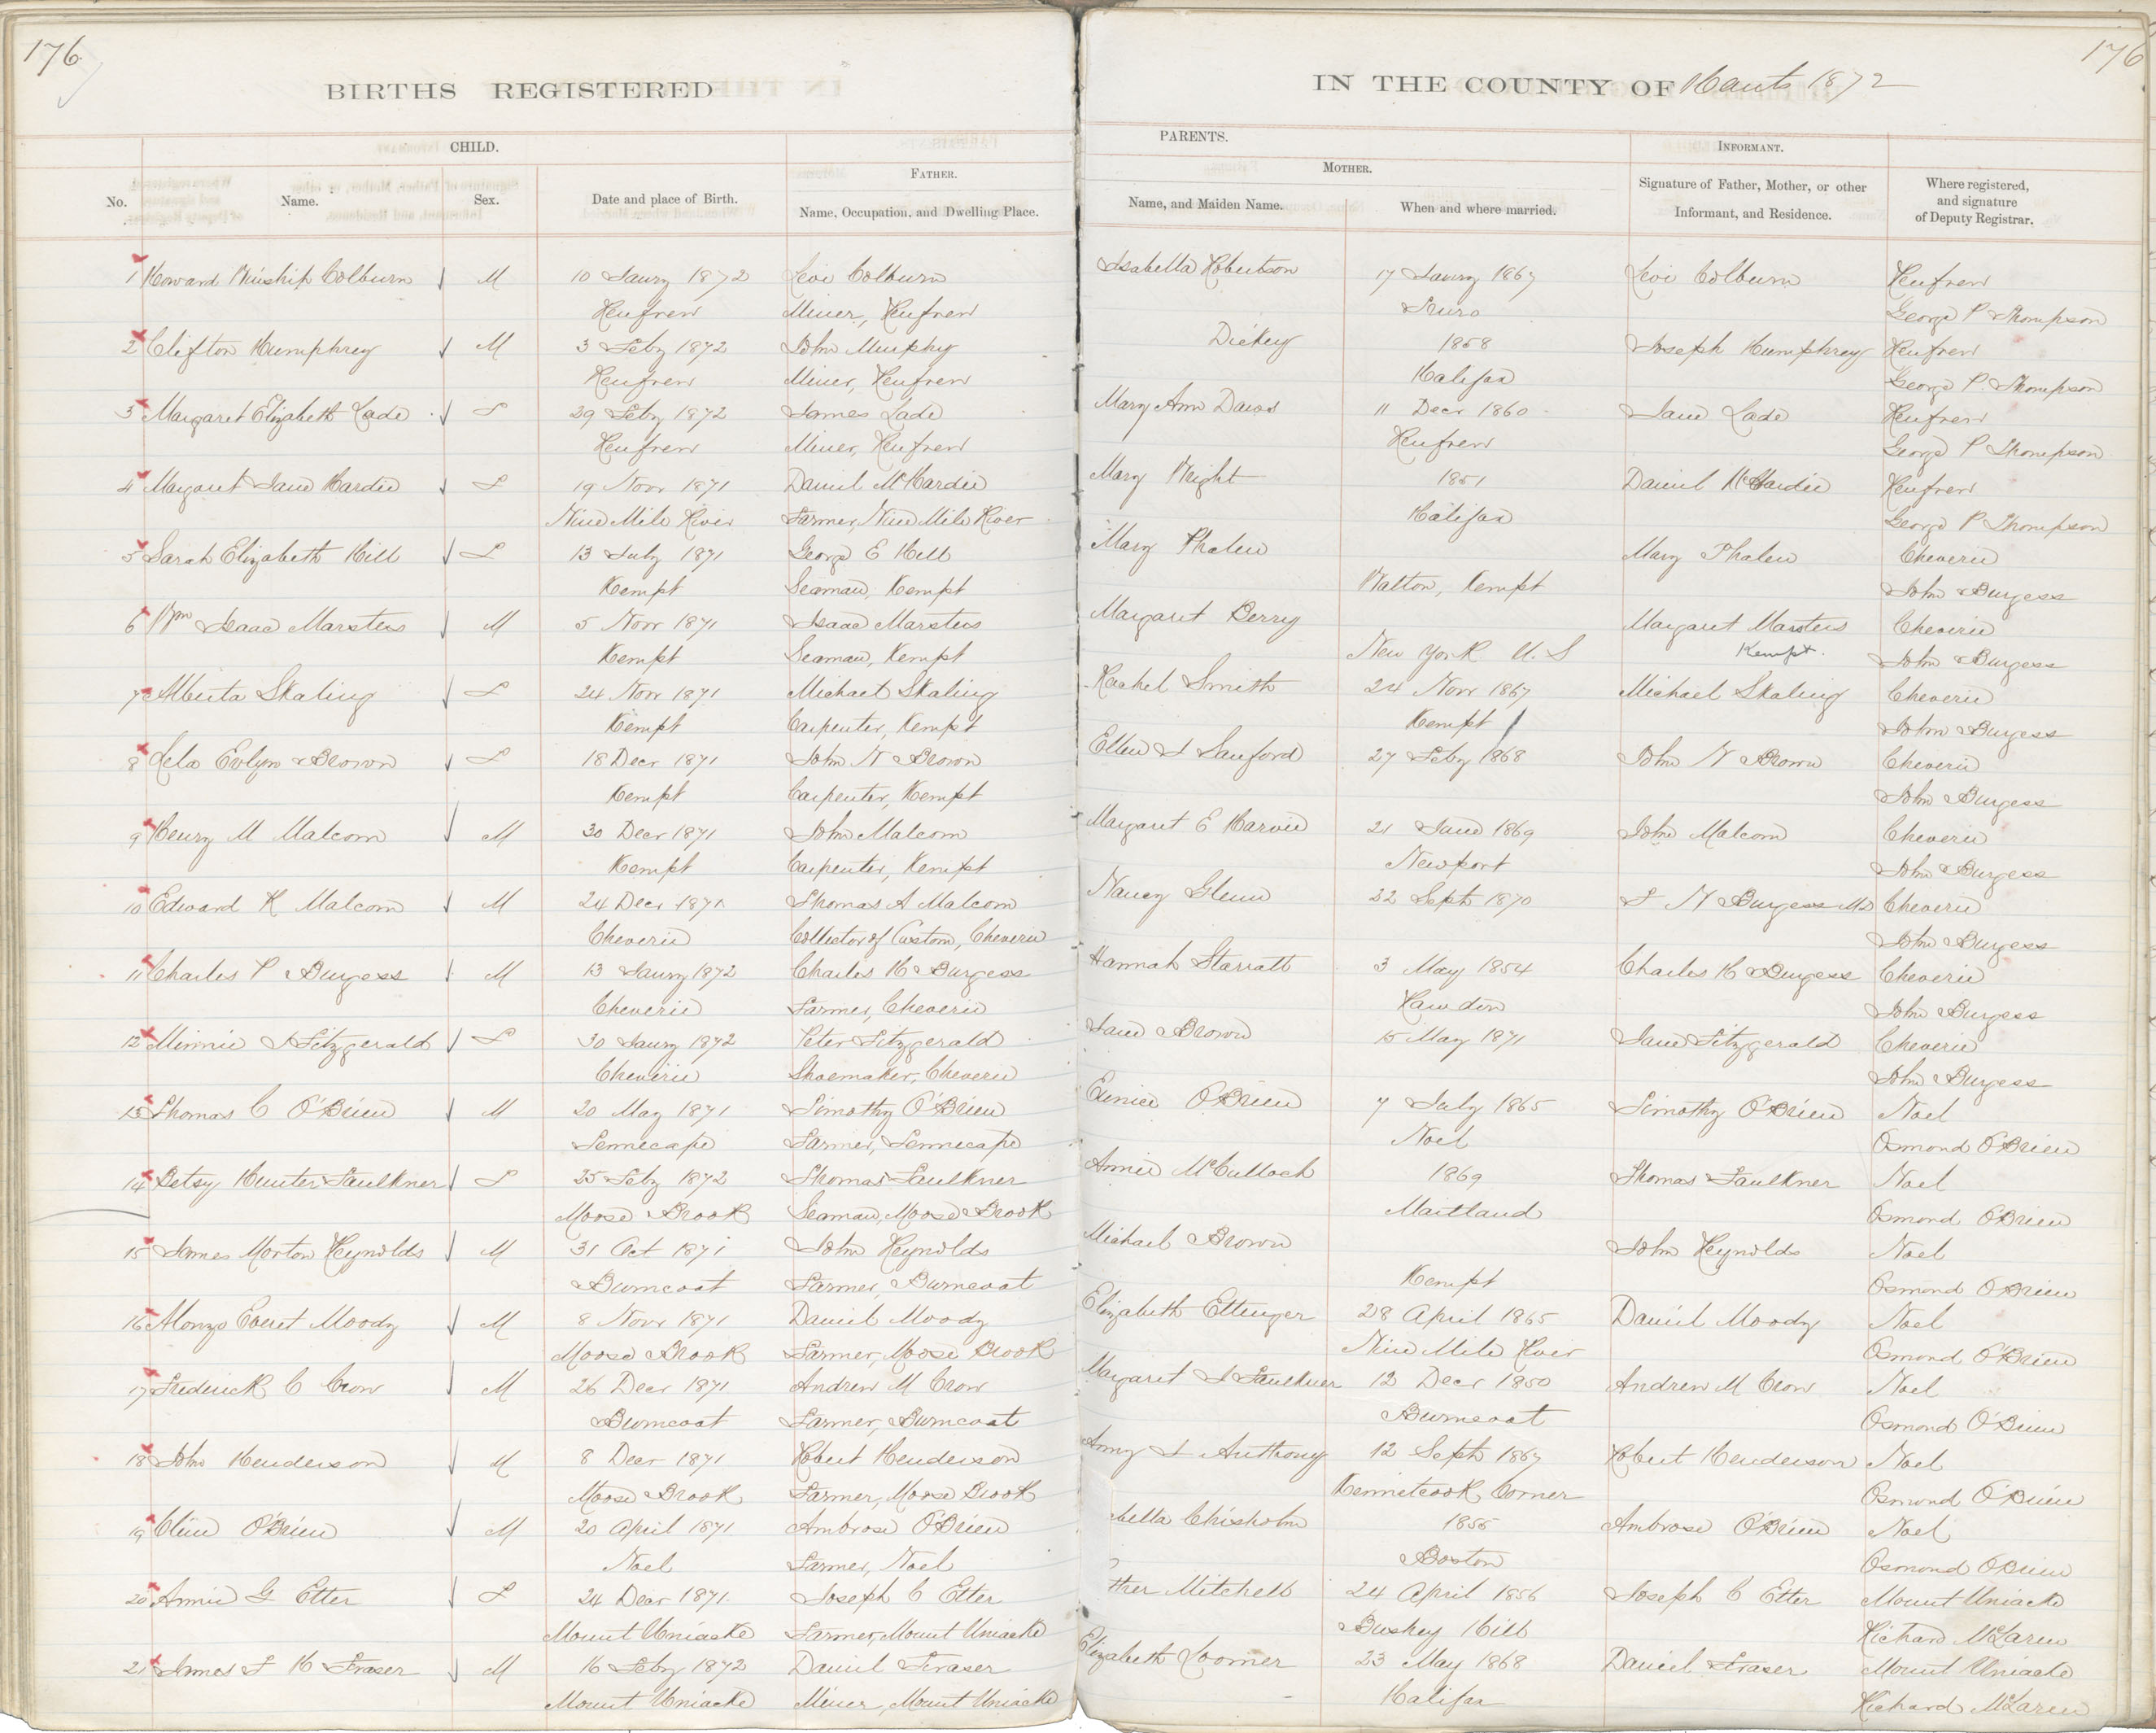 176
176
BIRTHS REGISTERED IN THE COUNTY OF Hants 1872
CHILD. PARENTS. INFORMANT.
FATHER. MOTHER.
No. Name. Sex. Date and place of Birth. Name, Occupation, and Dwelling Place. Name, and Maiden Name. When and where married. Signature of Father, Mother, or other Informant, and Residence. Where registered, and signature of Deputy Registrar.
1 Howard Winship Colburn M 10 Jany 1872 Levi Colburn Isabella Robertson 17 Jany 1867 Levi Colburn Renfrew
Renfrew Miner, Renfrew Truro George P Thompson
2 Clifton Humphrey M 3 Feby 1872 John Murphy Dickey 1858 Joseph Humphrey Renfrew
Renfrew Miner, Renfrew Halifax George P Thompson
3 Margaret Elizabeth Lade F 29 Feby 1872 James Lade Mary Ann Daws 11 Decr 1860 Jane Lade Renfrew
Renfrew Miner, Renfrew Renfrew George P Thompson
4 Margaret Jane Hardie F 19 Novr 1871 Daniel McHardie Mary Wright 1851 Daniel McHardie Renfrew
Nine Mile River Farmer, Nine Mile River Halifax George P Thompson
5 Sarah Elizabeth Hill F 13 July 1871 George E Hill Mary Phalen Mary Phalen Cheverie
Kempt Seaman, Kempt Walton, Kempt John Burgess
6 Wm Isaac Marsters M 5 Novr 1871 Isaac Marsters Margaret Berry Margaret Marsters Cheverie
Kempt Seaman, Kempt New York U.S Kempt. John Burgess
7 Alberta Skaling F 24 Novr 1871 Michael Skaling Rachel Smith 24 Novr 1867 Michael Skaling Cheverie
Kempt Carpenter, Kempt Kempt John Burgess
8 Lela Evelyn Brown F 18 Decr 1871 John N Brown Ellen J Sanford 27 Feby 1868 John N Brown Cheverie
Kempt Carpenter, Kempt John Burgess
9 Henry M Malcom M 30 Decr 1871 John Malcom Margaret E Harvie 21 June 1869 John Malcom Cheverie
Kempt Carpenter, Kempt Newport John Burgess
10 Edward K Malcom M 24 Decr 1871 Thomas A Malcom Nancy Glenn 22 Sept 1870 Burgess MD Cheverie
Cheverie Collector of Custom, Cheverie John Burgess
11 Charles P Burgess M 13 Jany 1872 Charles H Burgess Hannah Starratt 3 May 1854 Charles H Burgess Cheverie
Cheverie Farmer, Cheverie Rawdon John Burgess
12 Minnie J Fitzgerald F 30 Jany 1872 Peter Fitzgerald Jane Brown 15 May 1871 Jane Fitzgerald Cheverie
Cheverie Shoemaker, Cheverie John Burgess
13 Thomas C O'Brien M 20 May 1871 Timothy O'Brien Eunice O'Brien 7 July 1865 Timothy O'Brien Noel
Tennecape Farmer, Tennecape Noel Osmond O'Brien
14 Betsy Hunter Faulkner F 25 Feby 1872 Thomas Faulkner Annie McCulloch 1869 Thomas Faulkner Noel
Moose Brook Seaman, Moose Brook Maitland Osmond O'Brien
15 James Morton Reynolds M 31 Oct 1871 John Reynolds Michael Brown John Reynolds Noel
Burncoat Farmer, Burncoat Kempt Osmond O'Brien
16 Alonzo Everet Moody M 8 Novr 1871 Daniel Moody Elizabeth Ettenger 28 April 1865 Daniel Moody Noel
Moose Brook Farmer, Moose Brook Nine Mile River Osmond O'Brien
17 Frederick C Crow M 26 Decr 1871 Andrew M Crow Margaret J Faulkner 12 Decr 1850 Andrew M Crow Noel
Burncoat Farmer, Burncoat Burncoat Osmond O'Brien
18 John Henderson M 8 Decr 1871 Robert Henderson Amy J Anthony 12 Sept 1867 Robert Henderson Noel
Moose Brook Farmer, Moose Brook Kennetcook Corner Osmond O'Brien
19 Cline O'Brien M 20 April 1871 Ambrose O'Brien bella Chisholm 1855 Ambrose O'Brien Noel
Noel Farmer, Noel Boston Osmond O'Brien
20 Annie G Etter F 24 Decr 1871 Joseph C Etter ther Mitchell 24 April 1856 Joseph C Etter Mount Uniacke
Mount Uniacke Farmer, Mount Uniacke Bushey Hill Richard McLaren
21 James F H Fraser M 16 Feby 1872 Daniel Fraser Elizabeth Loomer 23 May 1868 Daniel Fraser Mount Uniacke
Mount Uniacke Miner, Mount Uniacke Halifax Richard McLaren